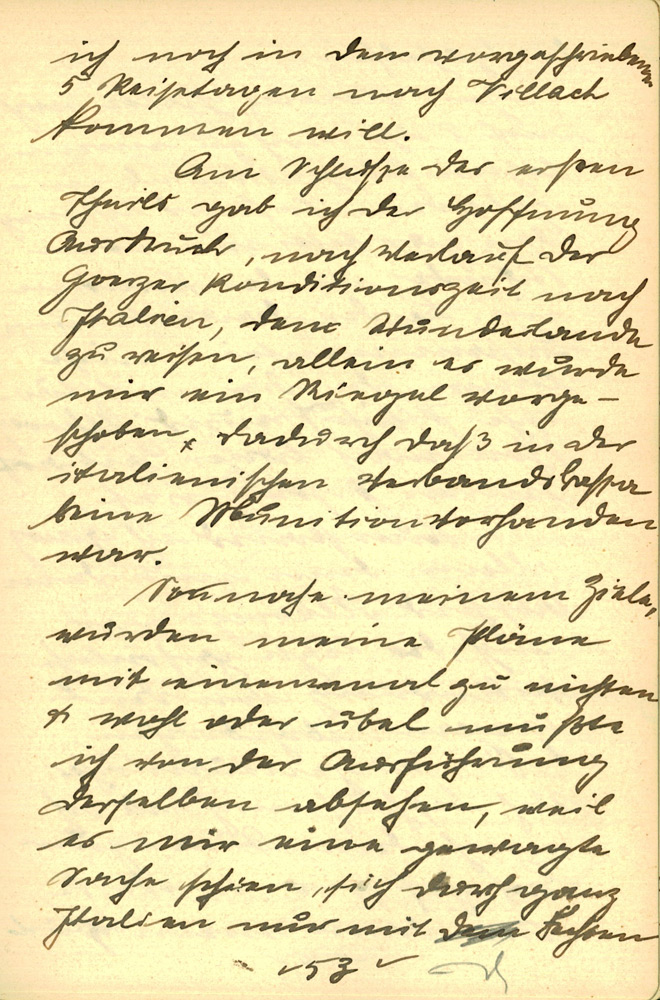 ich noch in den vorgeschriebenen
5 Reisetagen nach Villach
kommen will.
Am Schluße des ersten
Theils gab ich der Hoffnung
Ausdruck, nach Verlauf der
Goerzer Konditionszeit nach
Italien, dem Wunderlande
zu reisen, allein es wurde
mir ein Riegel vorge-
schoben, dadurch daß in der
italienischen Verbandskassa
keine Munition vorhanden
war.
So nahe meinem Ziele,
wurden meine Pläne
mit einemmal zu nichten
& wohl oder übel mußte
ich von der Ausführung
derselben absehen, weil
es mir eine gewagte
Sache schien, sich durch ganz
Italien nur mit dem Fechten
53